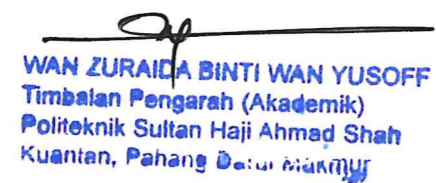 WAN ZURAIDA BINTI WAN YUSOFF
Timbalan Pengarah (Akademik)
Politeknik Sultan Haji Ahmad Shah
Kuantan, Pahang Darul Makmur